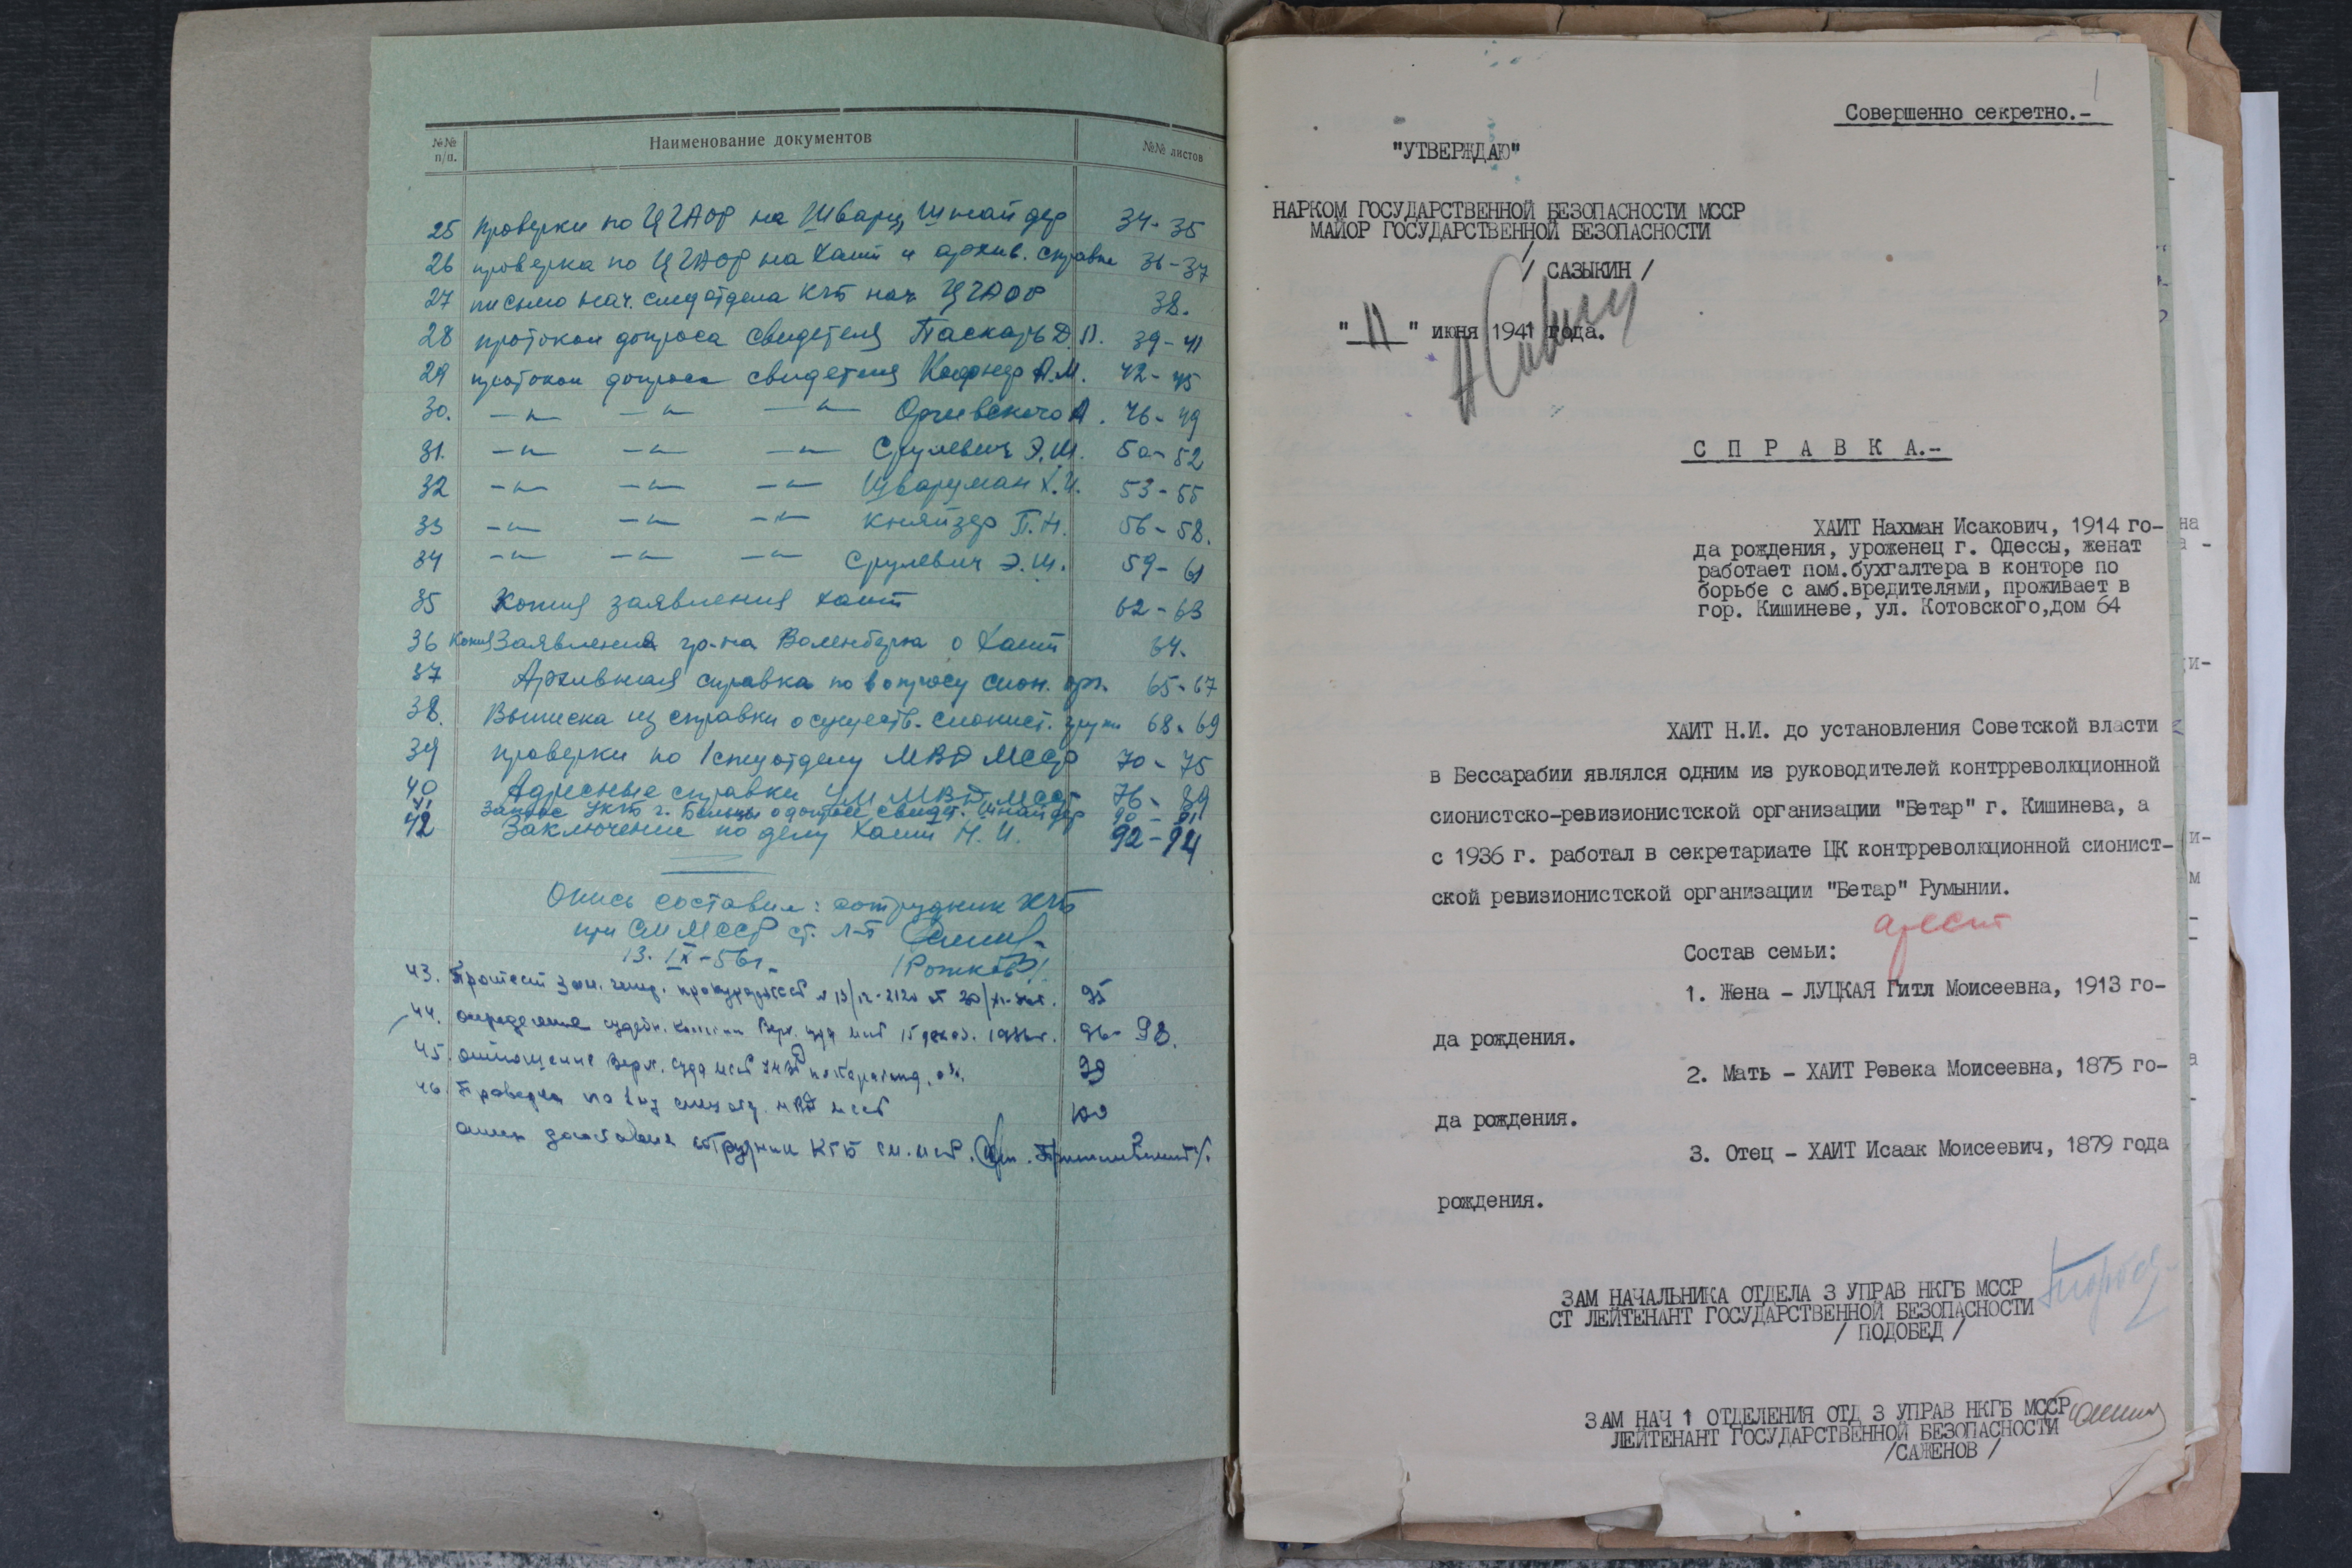 №№ п/п.
Наименование документов
№№ листов
25 Проверки по ЦГАОР на Шварц, Шнайдер 34-35
26 проверка по ЦГАОР на Хаит и архив. справка 36-37
27 письмо нач. следотдела КГБ нач. ЦГАОР 38.
28 протокол допроса свидетеля Паскарь Д. 39-41
29 протокол допроса свидетеля А.М. 42-45
30. –"– –"– –"– А. 46-49
31. –"– –"– –"– Срулевич Э.Ш. 50-52
32 –"– –"– –"– Шварцман Х.И. 53-55
33 –"– –"– –"– Кнайзер П.Н. 56-58.
34 –"– –"– –"– Срулевич Э.Ш. 59-61
35 Копия заявления Хаит 62-63
36 Копия Заявления гр-на о Хаит 64.
37 Архивная справка по вопросу сион. орг. 65-67
38. Выписка из справки о существ. сионист. групп 68-69
39 проверки по 1 спецотделу МВД МССР 70-75
40 Адресные справки УМ МВД МССР 76-89
41 Запрос УКГБ г. Бельцы о допросе свидет. Шнайдер 90-91
42 Заключение по делу Хаит Н.И. 92-94
Опись составил: сотрудник КГБ
при СМ МССР ст. л-т
13.IX-56г. /Рожков/
43. Протест зам. генер. прокурора СССР 95
44. определение судебн. коллегии Верх. суда МССР 15 декаб. 1956г. 96-98.
45. отношение Верх. суда МССР 99
46. Проверка по 1му спец отд. МВД МССР 100
сотрудник КГБ
1
Совершенно секретно.-
"УТВЕРЖДАЮ"
НАРКОМ ГОСУДАРСТВЕННОЙ БЕЗОПАСНОСТИ МССР
МАЙОР ГОСУДАРСТВЕННОЙ БЕЗОПАСНОСТИ
/ САЗЫКИН /
"11" июня 1941 года.
С П Р А В К А.-
ХАИТ Нахман Исакович, 1914 го-
да рождения, уроженец г. Одессы, женат
работает пом.бухгалтера в конторе по
борьбе с амб.вредителями, проживает в
гор. Кишиневе, ул. Котовского,дом 64
ХАИТ Н.И. до установления Советской власти
в Бессарабии являлся одним из руководителей контрреволюционной
сионистско-ревизионистской организации "Бетар" г. Кишинева, а
с 1936 г. работал в секретариате ЦК контрреволюционной сионист-
ской ревизионистской организации "Бетар" Румынии.
арест
Состав семьи:
1. Жена - ЛУЦКАЯ Гитл Моисеевна, 1913 го-
да рождения.
2. Мать - ХАИТ Ревека Моисеевна, 1875 го-
да рождения.
3. Отец - ХАИТ Исаак Моисеевич, 1879 года
рождения.
ЗАМ НАЧАЛЬНИКА ОТДЕЛА 3 УПРАВ НКГБ МССР
СТ ЛЕЙТЕНАНТ ГОСУДАРСТВЕННОЙ БЕЗОПАСНОСТИ
/ ПОДОБЕД /
ЗАМ НАЧ 1 ОТДЕЛЕНИЯ ОТД 3 УПРАВ НКГБ МССР
ЛЕЙТЕНАНТ ГОСУДАРСТВЕННОЙ БЕЗОПАСНОСТИ
/САЖЕНОВ /